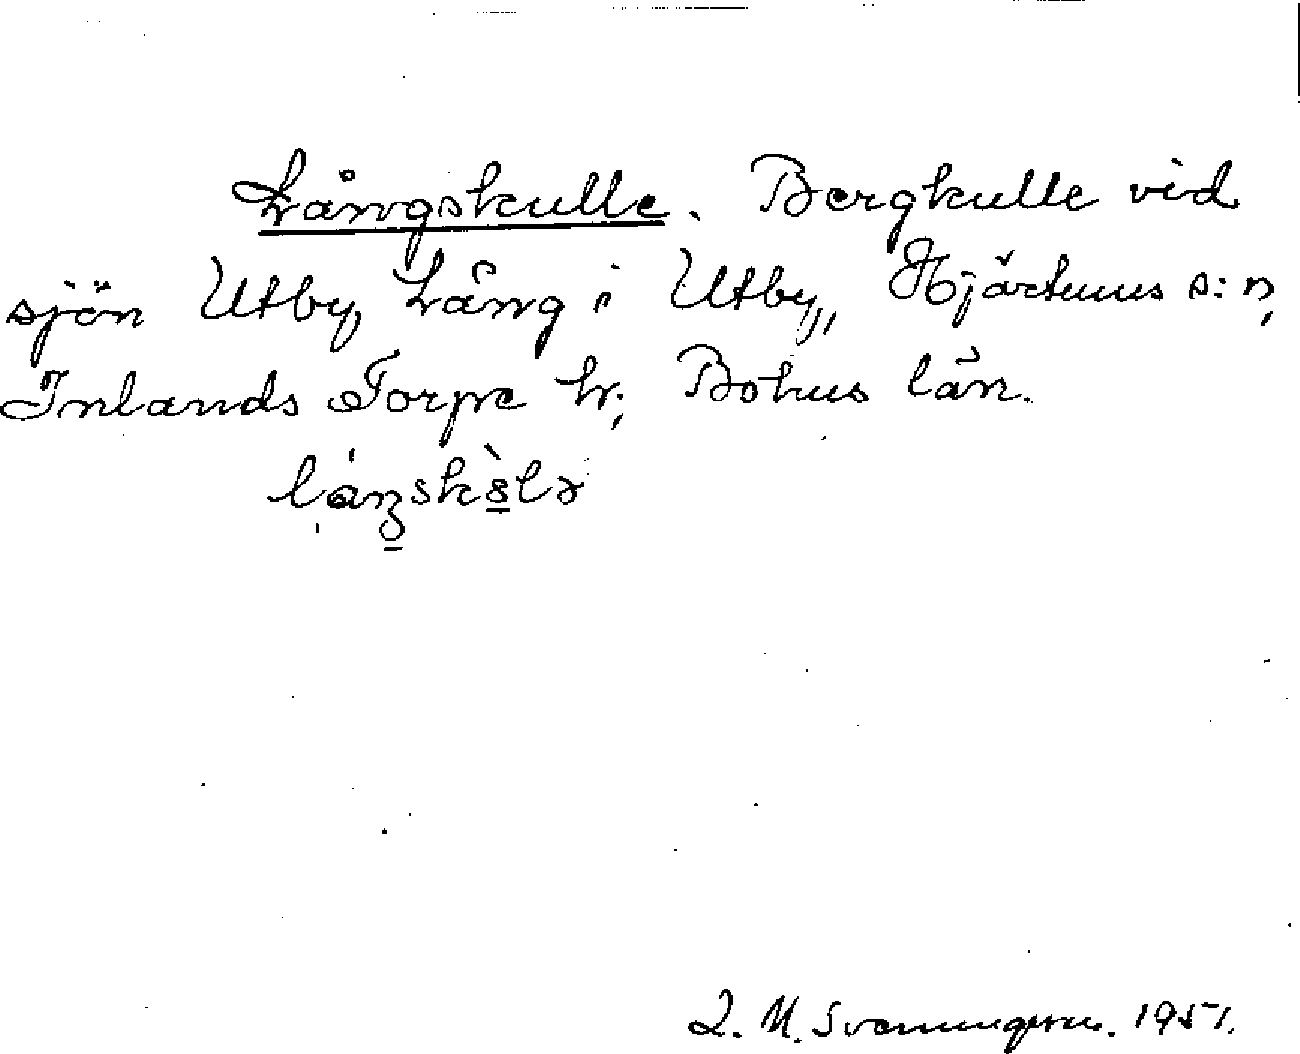 Långskulle. Bergkulle vid
sjön Utby Lång i Utby, Hjärtums s:n,
Inlands Torpe hr, Bohus län.
1951.